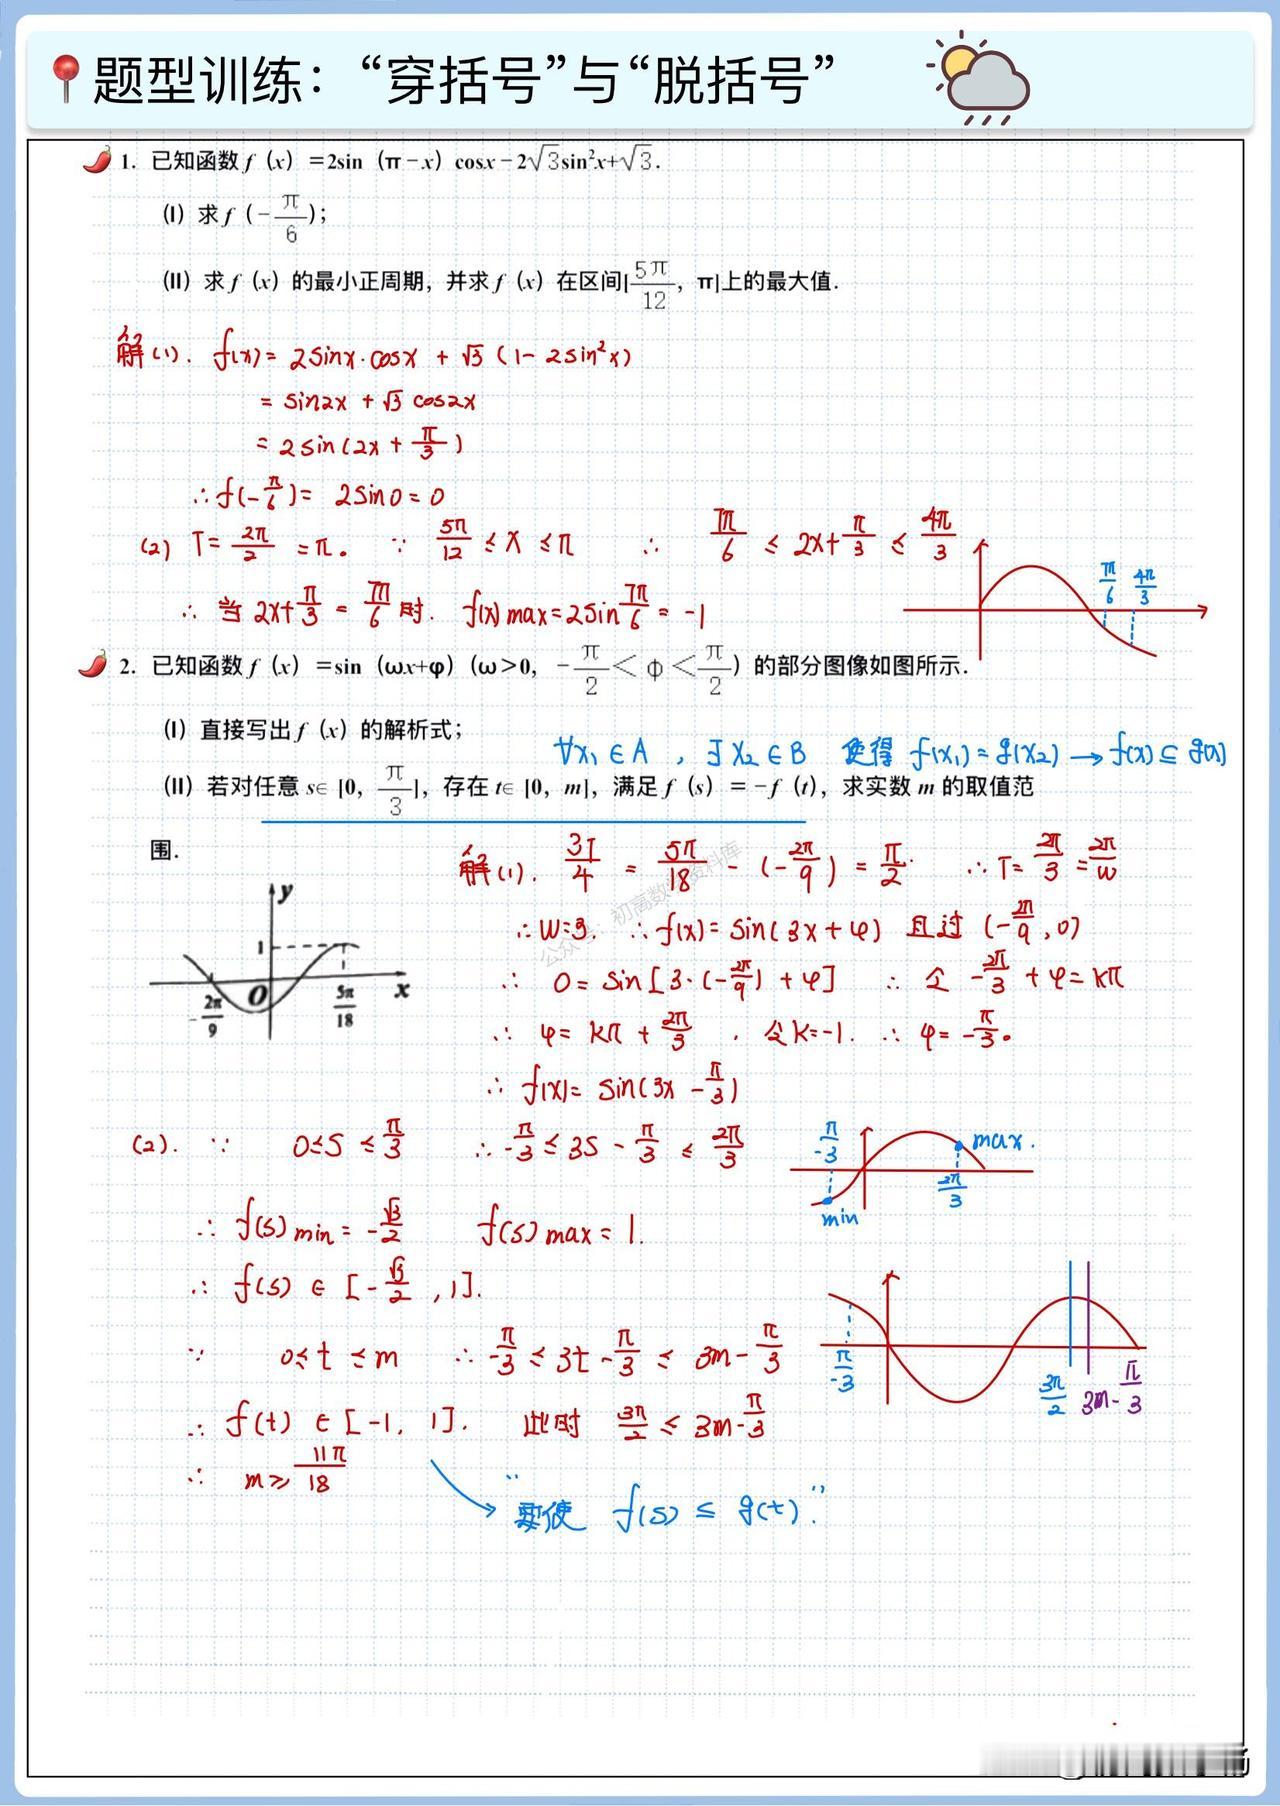 题型训练：“穿括号”与“脱括号”
1. 已知函数 f（x）=2sin（π-x）cosx-2√3sin²x+√3.
（Ⅰ）求 f（-π/6）；
（Ⅱ）求 f（x）的最小正周期，并求 f（x）在区间[5π/12，π]上的最大值.
解(1). f(x)= 2sinx·cosx + √3 (1- 2sin²x)
= sin2x + √3 cos2x
= 2sin(2x + π/3)
∴ f(-π/6)= 2sin0 = 0
(2) T= 2π/2 =π。 ∵ 5π/12 ≤ x ≤ π ∴ 7π/6 ≤ 2x+π/3 ≤ 4π/3
7π/6 4π/3
∴ 当 2x+π/3 = 7π/6 时. f(x)max=2sin7π/6 = -1
2. 已知函数 f（x）=sin（ωx+φ）（ω>0，-π/2<φ<π/2）的部分图像如图所示.
（Ⅰ）直接写出 f（x）的解析式；
∀x₁∈A , ∃x₂∈B 使得 f(x₁)=g(x₂) → f(x)⊆g(x)
（Ⅱ）若对任意 s∈[0，π/3]，存在 t∈[0，m]，满足 f（s）=-f（t），求实数 m 的取值范
围.
y
1
O
x
-2π/9
5π/18
解(1). 3T/4 = 5π/18 - (-2π/9) = π/2. ∴ T= 2π/3 = 2π/w
∴ w=3. ∴ f(x)= sin(3x+φ) 且过 (-2π/9 , 0)
∴ 0= sin[3·(-2π/9) + φ] ∴ 令 -2π/3 + φ = kπ
∴ φ= kπ + 2π/3 . 令k=-1. ∴ φ= -π/3。
∴ f(x)= sin(3x - π/3)
(2). ∵ 0≤s≤π/3 ∴ -π/3 ≤ 3s - π/3 ≤ 2π/3
-π/3 max.
2π/3
min
∴ f(s)min = -√3/2 f(s)max = 1.
∴ f(s) ∈ [-√3/2 , 1].
∵ 0≤t≤m ∴ -π/3 ≤ 3t-π/3 ≤ 3m-π/3
-π/3 3π/2 3m-π/3
∴ f(t) ∈ [-1, 1]. 此时 3π/2 ≤ 3m-π/3
∴ m≥ 11π/18
“要使 f(s) ⊆ g(t).”